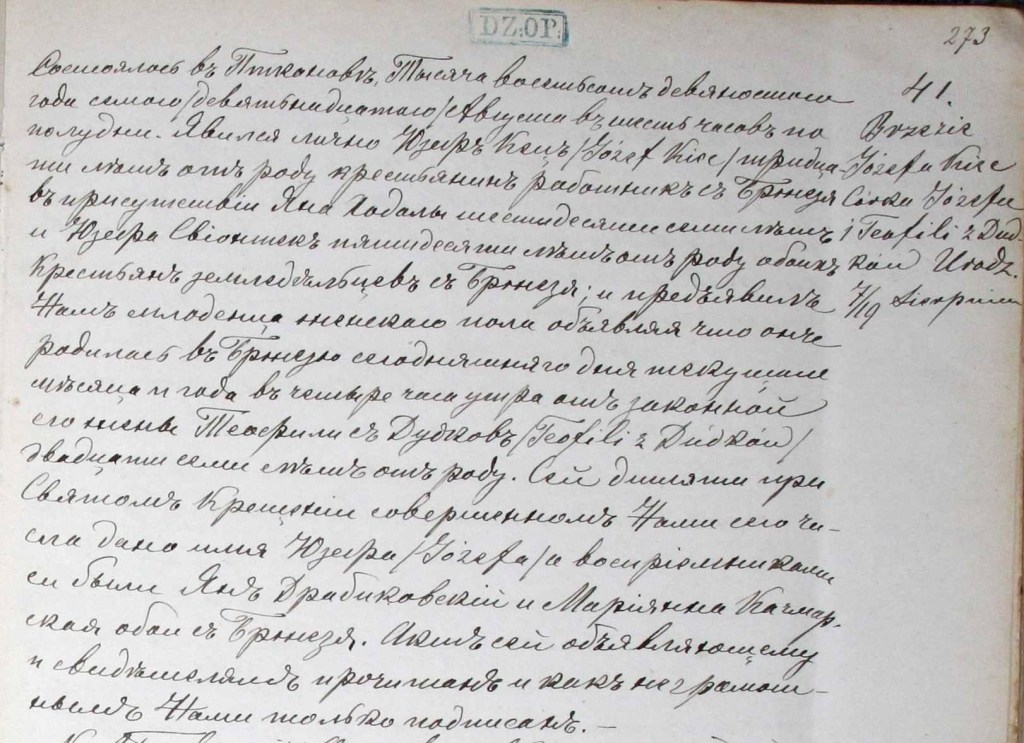 DZ:OP.
273
Состоялось въ Птканов Тысяча восемьсотъ девяностаго
года семого/девятьнадцатаго/Августа въ шесть часовъ по
полудни. Явился лично Юзефъ Кецъ /Józef Kiec/ тридца-
ти лѣтъ отъ роду крестьянинъ работникъ съ Брже​зя
въ присутствіи Яна Ходалы шестидесяти семи лѣтъ
и Юзефа Свіонтекъ пятидесяти лѣтъ отъ роду обоихъ
крестьянъ земледѣльцевъ съ Бржезя; и предъявилъ
Намъ младенца женскаго пола объявляя что оно
родилась въ Бржезю сегодняшняго дня текущаго
мѣсяца и года въ четыре часа утра отъ законной
его жены Теофили съ Дудковъ /Teofili z Dudków/
двадцати семи лѣтъ отъ роду. Сей дитяти при
Святомъ Крещеніи совершенномъ Нами сего чи-
сла дано имя Юзефа /Józefa/ а воспріемниками
ея были Янъ Драбиковскій и Маріянна Качмар-
ская обои съ Бржезя. Актъ сей объявляющему
и свидѣтелямъ прочитанъ и какъ неграмот-
нымъ Нами только подписанъ. –
41.
Brzezie
Józefa Kiec
Córka Józefa
i Teofili z Dud-
ków Urodz.
7/19 Sierpnia